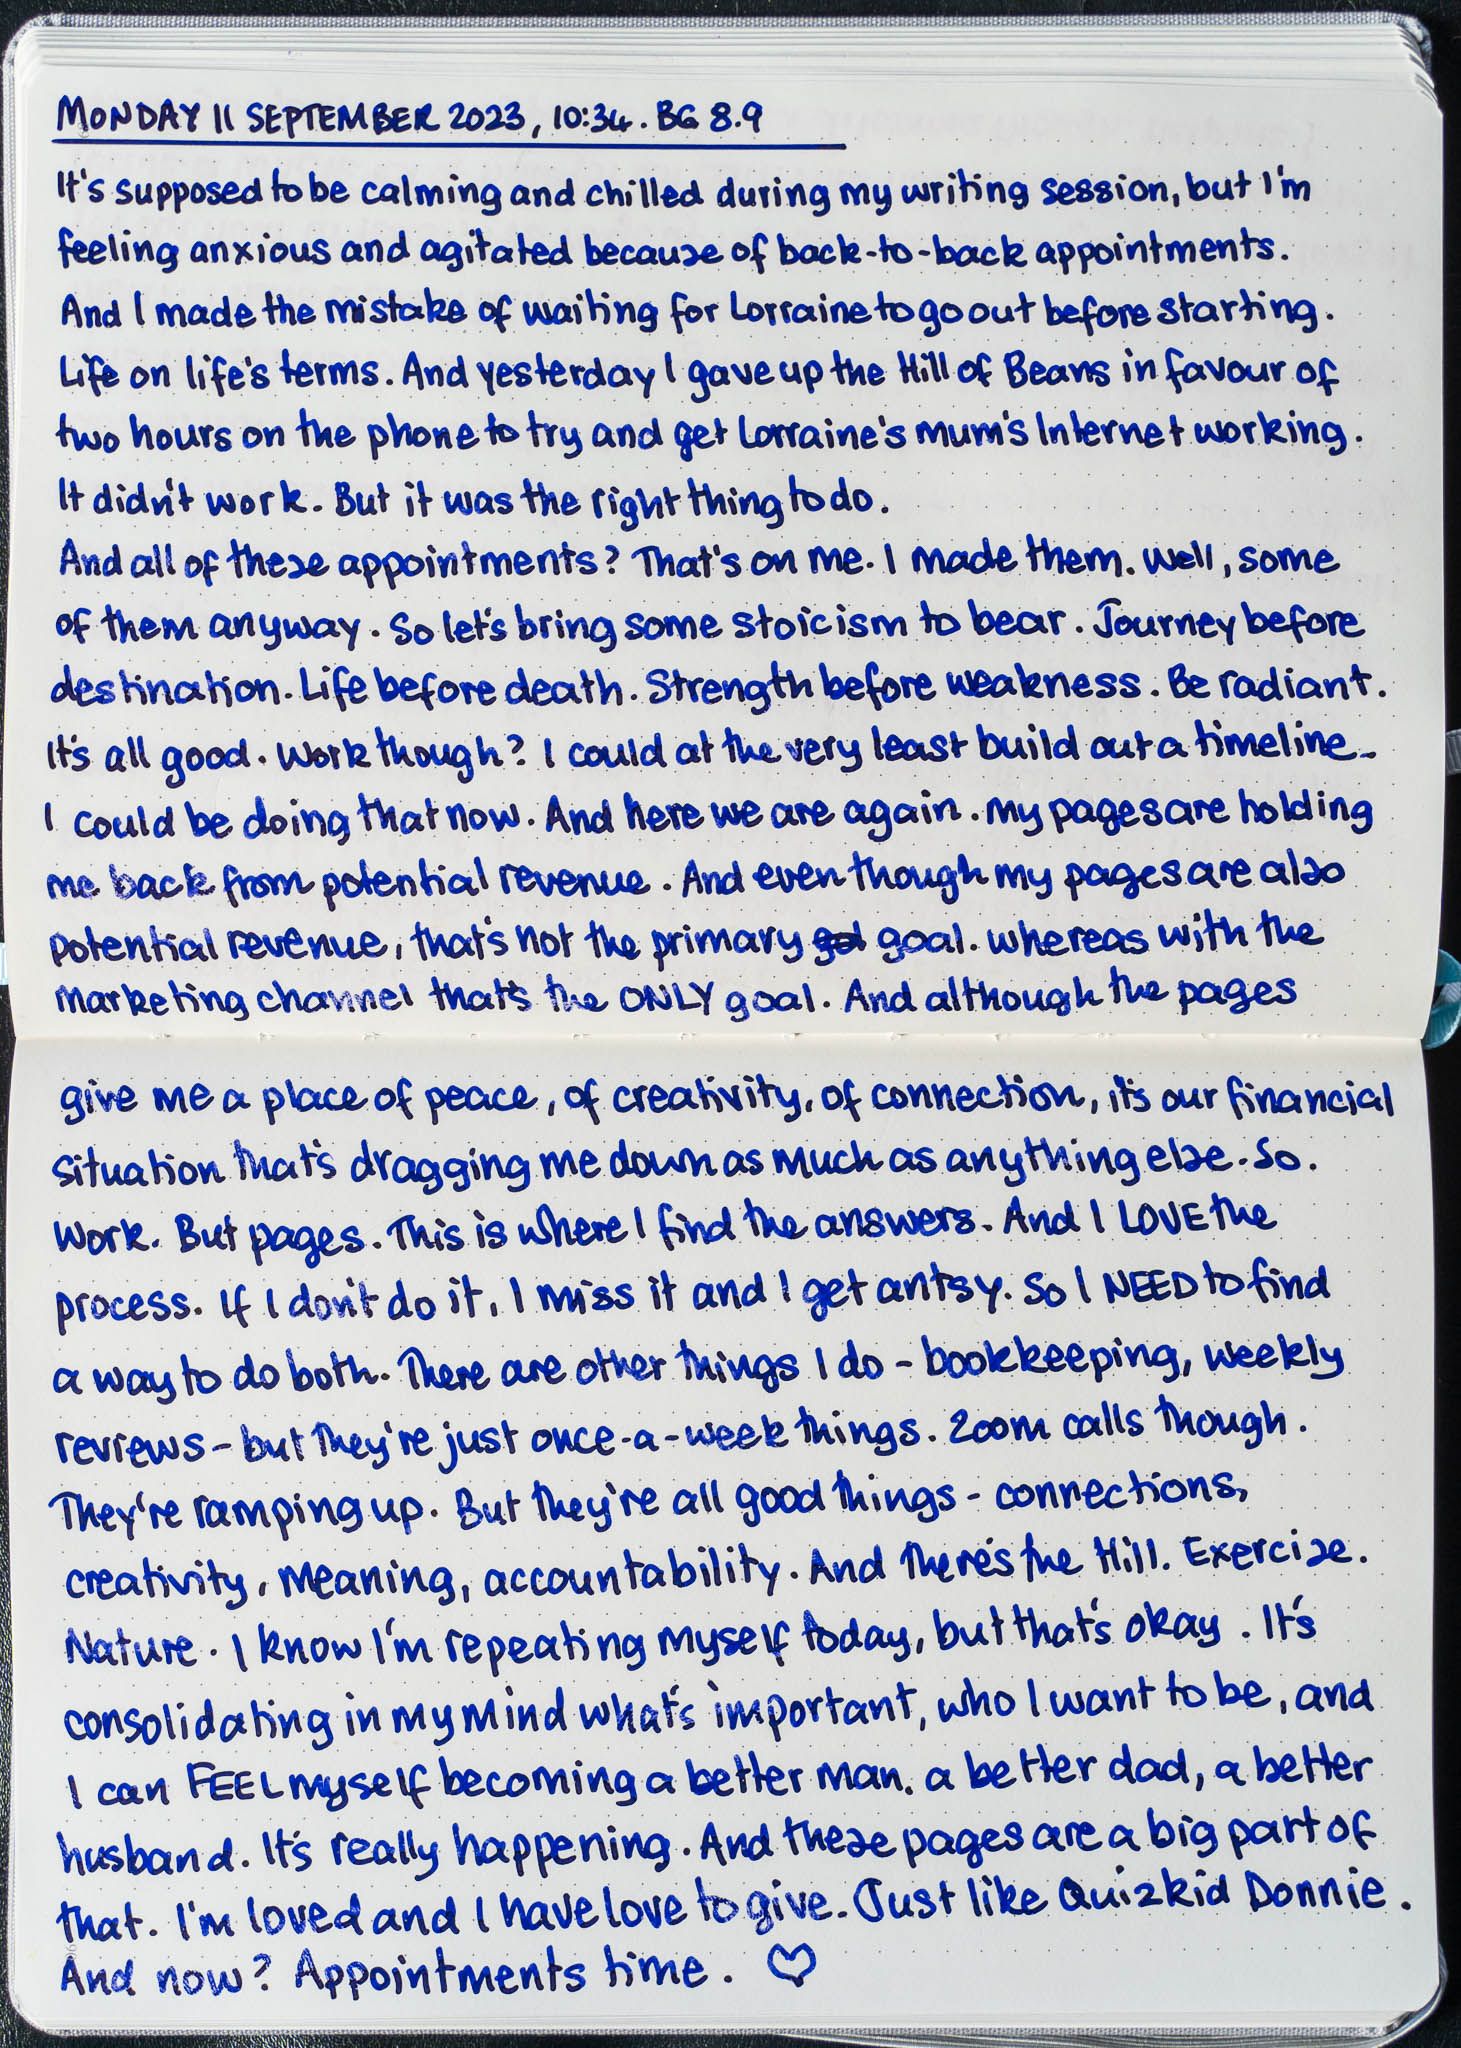 MONDAY 11 SEPTEMBER 2023, 10:34. BG 8.9
It's supposed to be calming and chilled during my writing session, but I'm
feeling anxious and agitated because of back-to-back appointments.
And I made the mistake of waiting for Lorraine to go out before starting.
Life on life's terms. And yesterday I gave up the Hill of Beans in favour of
two hours on the phone to try and get Lorraine's mum's Internet working.
It didn't work. But it was the right thing to do.
And all of these appointments? That's on me. I made them. Well, some
of them anyway. So let's bring some stoicism to bear. Journey before
destination. Life before death. Strength before weakness. Be radiant.
It's all good. Work though? I could at the very least build out a timeline.
I could be doing that now. And here we are again. My pages are holding
me back from potential revenue. And even though my pages are also
potential revenue, that's not the primary goal. Whereas with the
marketing channel that's the ONLY goal. And although the pages
give me a place of peace, of creativity, of connection, it's our financial
situation that's dragging me down as much as anything else. So.
Work. But pages. This is where I find the answers. And I LOVE the
process. If I don't do it, I miss it and I get antsy. So I NEED to find
a way to do both. There are other things I do - bookkeeping, weekly
reviews - but they're just once-a-week things. Zoom calls though.
They're ramping up. But they're all good things - connections,
creativity, meaning, accountability. And there's the Hill. Exercise.
Nature. I know I'm repeating myself today, but that's okay. It's
consolidating in my mind what's important, who I want to be, and
I can FEEL myself becoming a better man, a better dad, a better
husband. It's really happening. And these pages are a big part of
that. I'm loved and I have love to give. Just like Quizkid Donnie.
And now? Appointments time. ♡